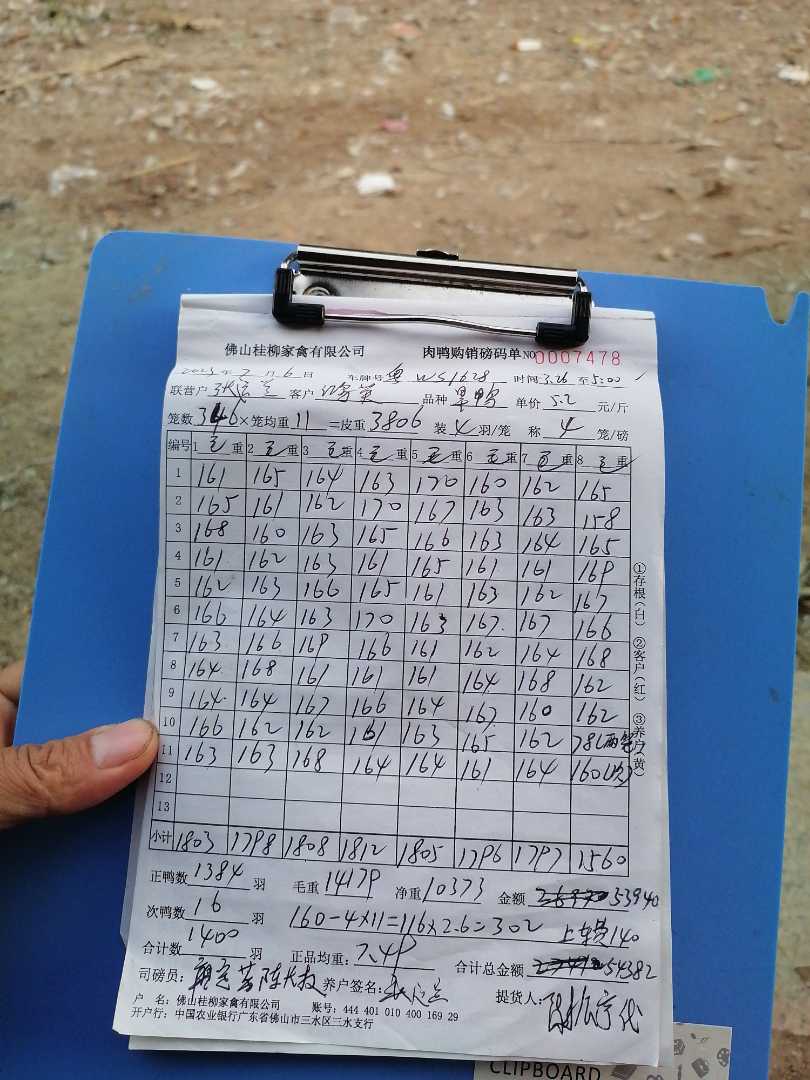 佛山桂柳家禽有限公司 肉鸭购销磅码单 NO 0007478
2023年2月6日 车牌号 粤WS1628 时间 3.26 至 5:00
联营户 客户 品种 单价 5.2 元/斤
笼数 346 ×笼均重 11 =皮重 3806 装 4 羽/笼 称 4 笼/磅
编号 1 毛重 2 毛重 3 毛重 4 毛重 5 毛重 6 毛重 7 毛重 8 毛重
1 161 165 164 163 170 160 162 165
2 165 161 162 170 167 163 163 158
3 168 160 163 165 166 163 164 165
4 161 162 163 161 165 161 161 169
5 162 163 166 165 161 163 162 167
6 166 164 163 170 163 167 167 166
7 163 166 169 166 161 162 164 168
8 164 168 161 161 161 164 168 162
9 164 164 167 166 164 167 160 162
10 166 162 162 161 163 165 162 78(两笼)
11 163 163 168 164 164 161 164 160(次)
12
13
小计 1803 1798 1808 1812 1805 1796 1797 1560
①存根(白) ②客户(红) ③养户(黄)
正鸭数 1384 羽 毛重 14179 净重 10373 金额 53940
次鸭数 16 羽 160-4×11=116×2.6=302 上车费140
合计数 1400 羽 正品均重: 7.49 合计总金额 54382
司磅员: 养户签名: 提货人:
户 名: 佛山桂柳家禽有限公司 账号: 444 401 010 400 169 29
开户行: 中国农业银行广东省佛山市三水区三水支行
CLIPBOARD